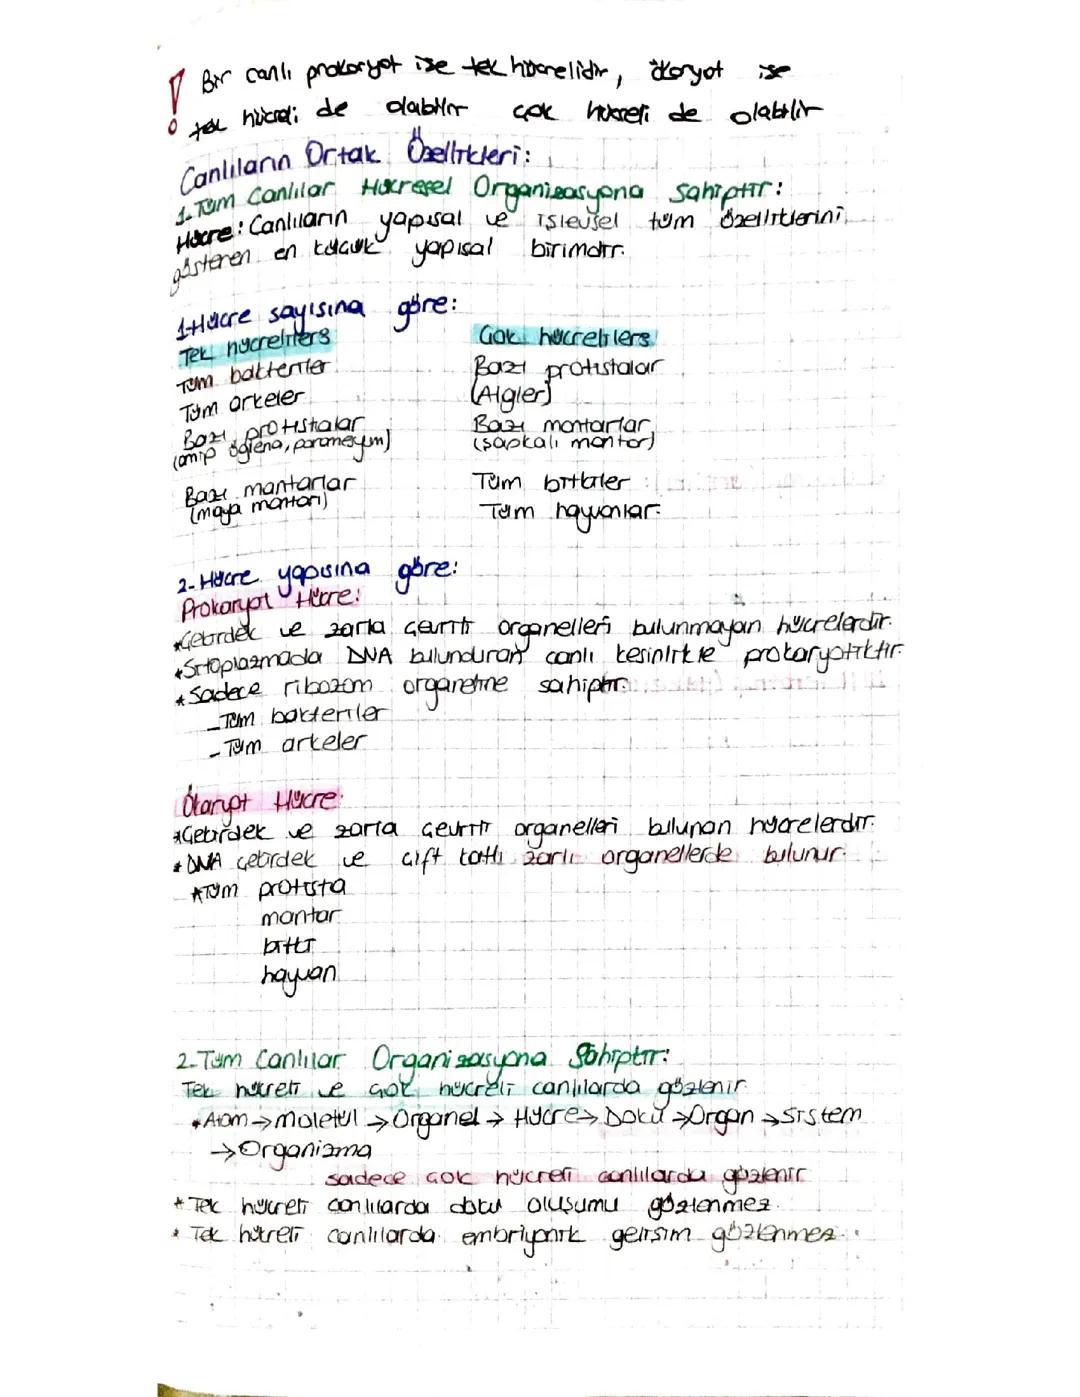 ! Bir canlı prokaryot ise tek hücrelidir, ökaryot ise
tek hücreli de olabilir çok hücreli de olabilir
Canlıların Ortak Özellikleri:
1. Tüm Canlılar Hücresel Organizasyona Sahiptir:
Hücre: Canlıların yapısal ve işlevsel tüm özelliklerini
gösteren en küçük yapısal birimdir.
1-Hücre sayısına göre:
Tek hücreliler Çok hücreliler
Tüm bakteriler Bazı protistalar
Tüm arkeler (Algler)
Bazı protistalar Bazı mantarlar
(amip öglena, paramesyum) (şapkalı mantar)
Bazı mantarlar Tüm bitkiler
(maya mantarı) Tüm hayvanlar.
2-Hücre yapısına göre:
Prokaryot Hücre:
*Çekirdek ve zarla çevrili organelleri bulunmayan hücrelerdir.
*Sitoplazmada DNA bulunduran canlı kesinlikle prokaryotiktir.
*Sadece ribozom organeline sahiptir.
-Tüm bakteriler
-Tüm arkeler
Ökaryot Hücre
*Çekirdek ve zarla çevrili organelleri bulunan hücrelerdir.
*DNA çekirdek ve çift katlı zarlı organellerde bulunur.
*Tüm protista
mantar
bitki
hayvan
2-Tüm Canlılar Organizasyona Sahiptir:
Tek hücreli ve çok hücreli canlılarda gözlenir
*Atom→Molekül→Organel→Hücre→Doku→Organ→Sistem
→Organizma
sadece çok hücreli canlılarda gözlenir
*Tek hücreli canlılarda doku oluşumu gözlenmez.
*Tek hücreli canlılarda embriyonik gelişim gözlenmez.